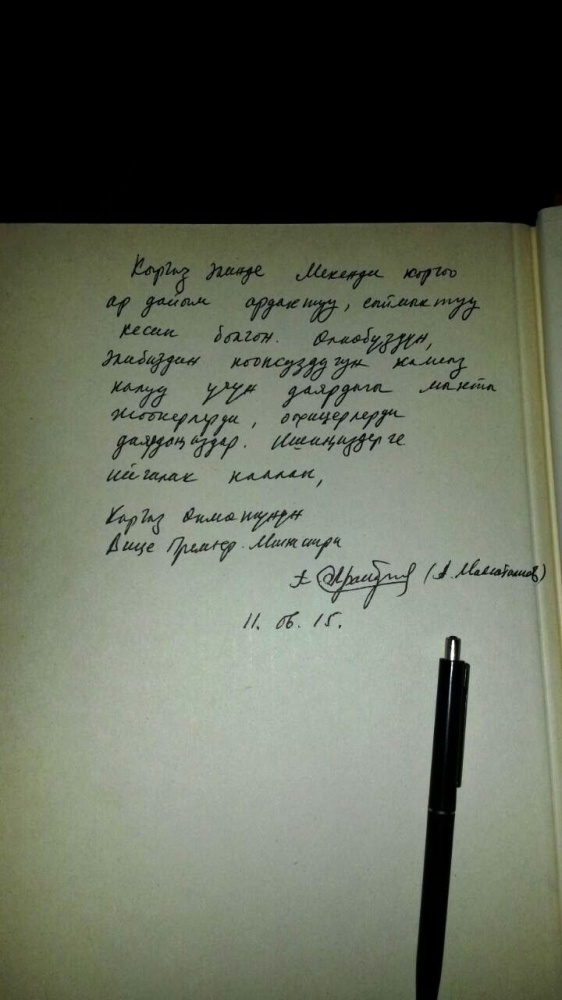 Кыргыз элинде Мекенди коргоо
ар дайым ардактуу, сыймыктуу
кесип болгон. Өлкөбүздүн,
Элибиздин коопсуздугун камсыз
кылуу үчүн даярдыгы мыкты
жоокерлерди, офицерлерди
даярдаңыздар. Ишиңиздерге
ийгилик каалап,
Кыргыз Өкмөтүнүн
Вице Премьер-Министри
(А. Маматалиев)
11. 06. 15.